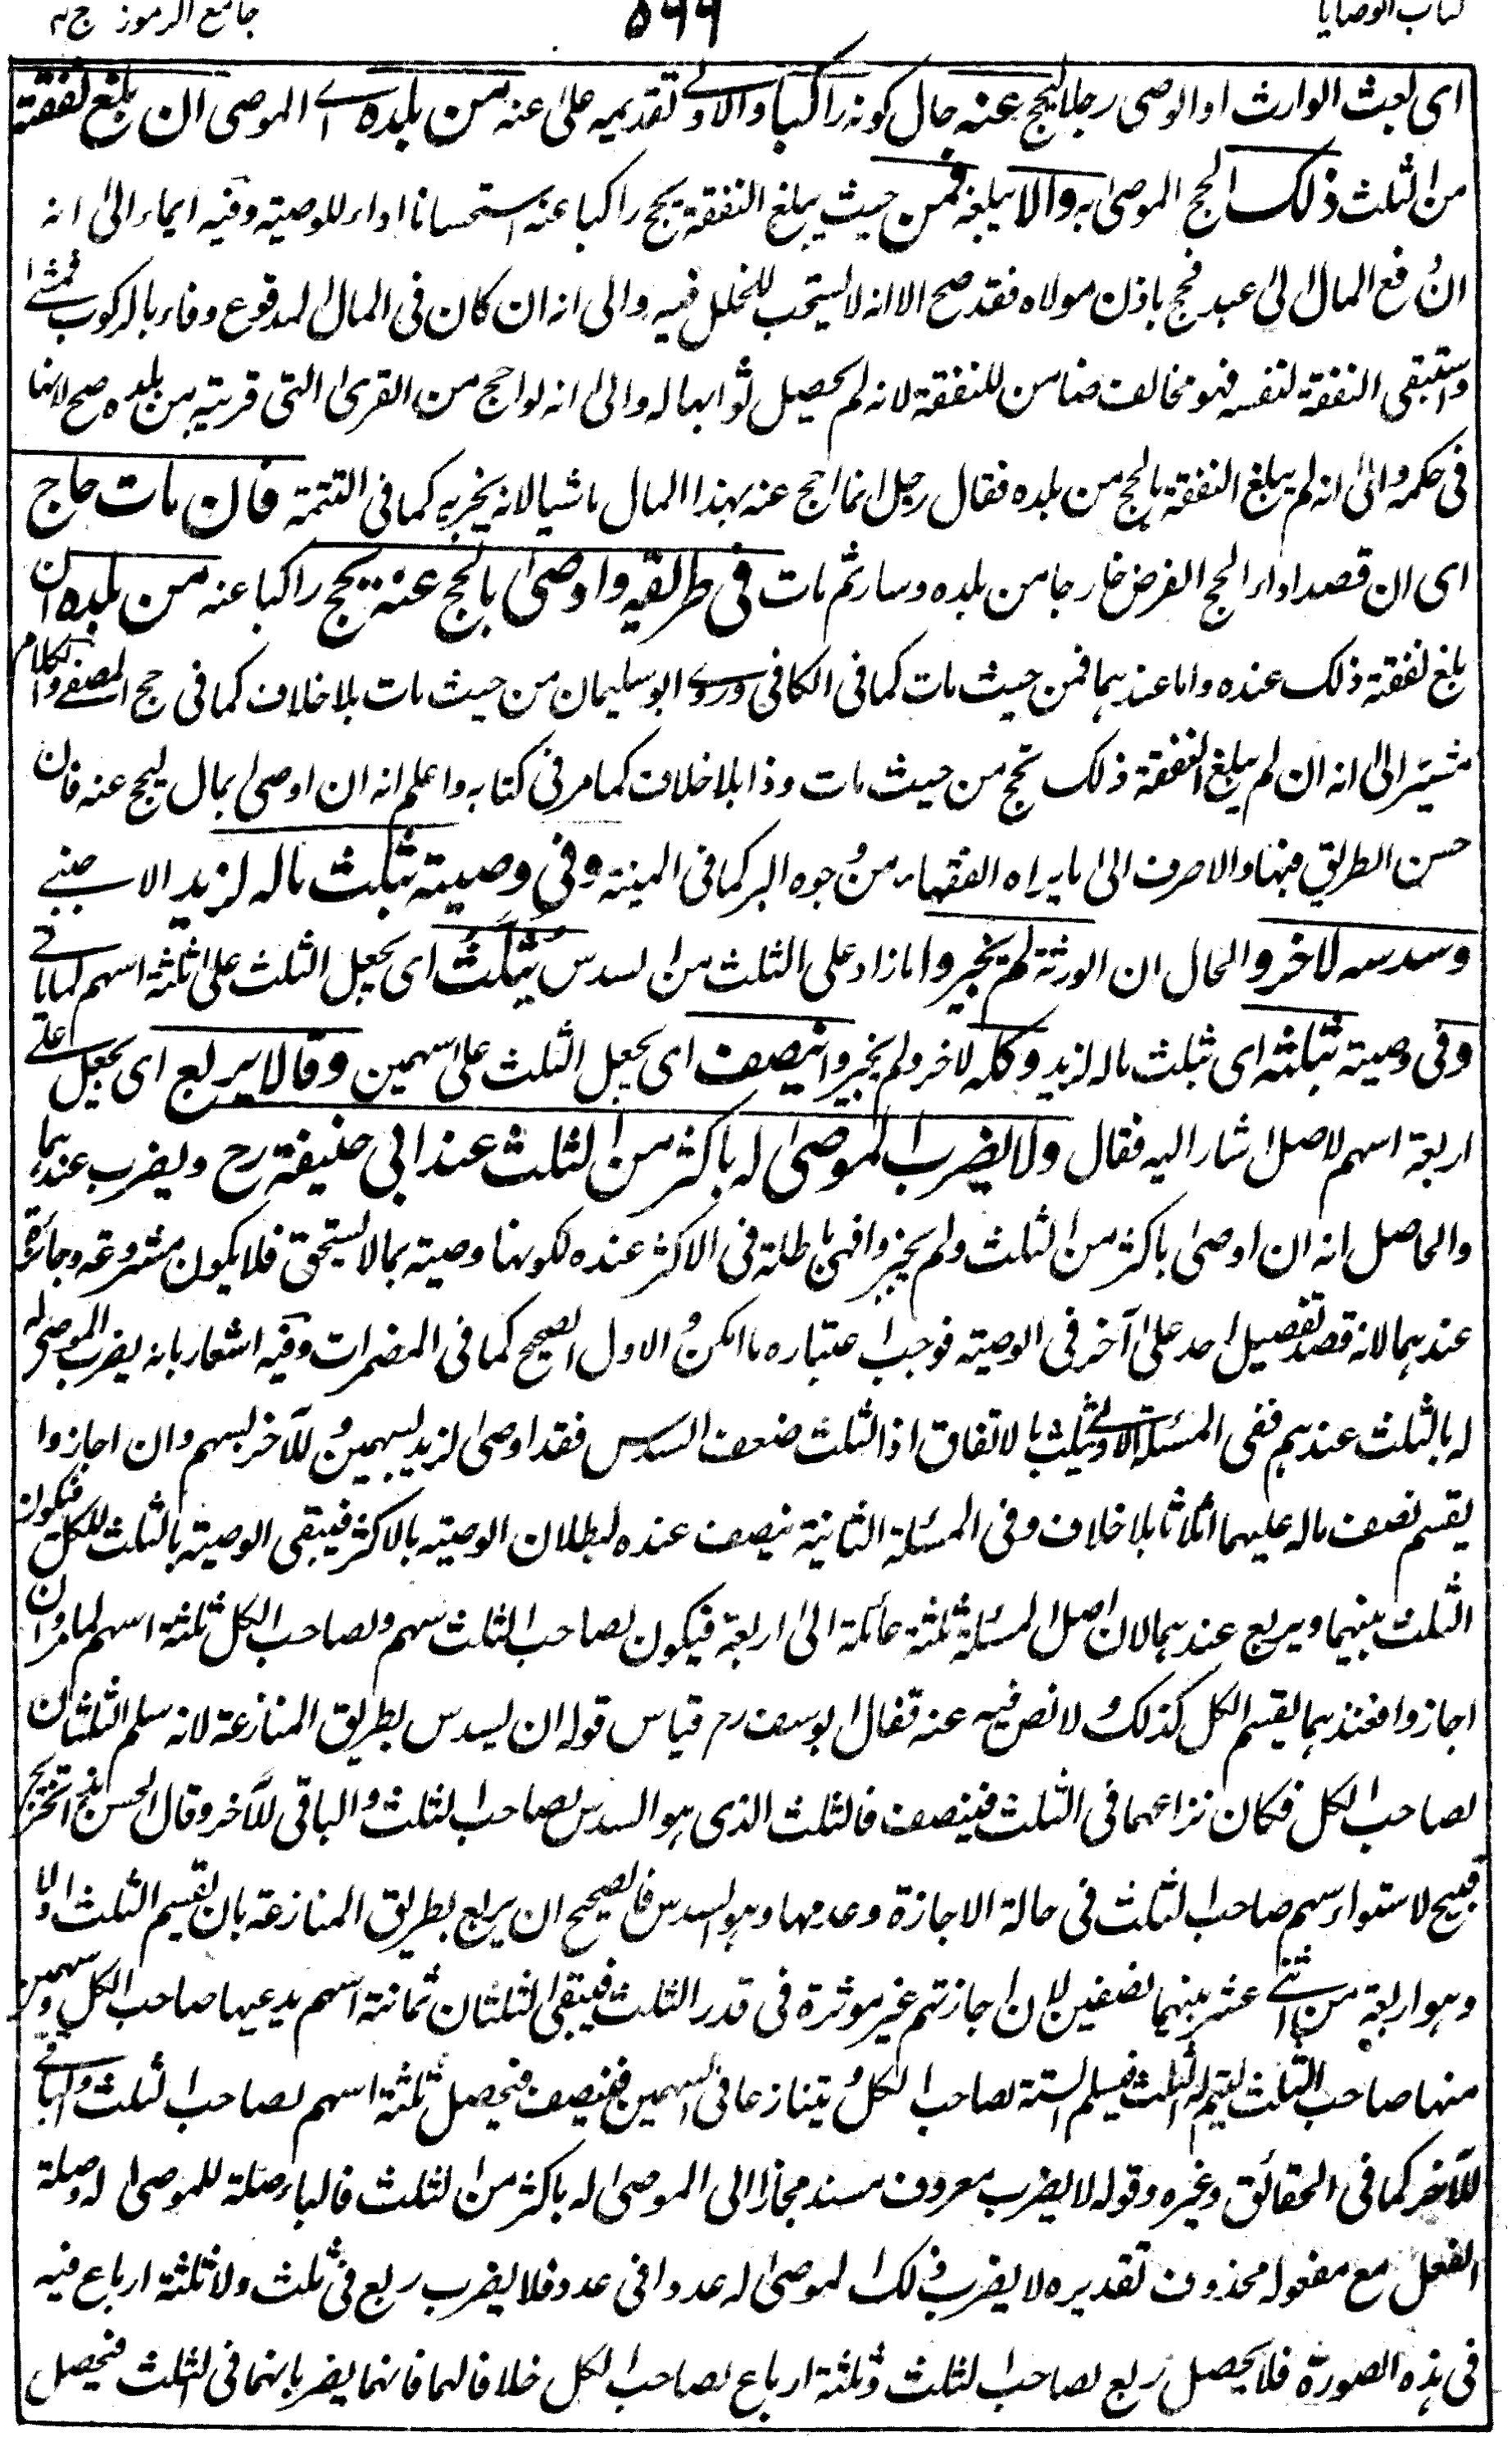 كتاب الوصايا ٥٩٩ جامع الرموز ج٢
اى بعث الوارث او الوصى رجلا ليحج عنه حال كونه راكبا والاولى تقديمه على عنه من بلده اى الموصى ان بلغ نفقته
من الثلث ذلك الحج الموصى به والا يبلغه فمن حيث يبلغ النفقة يحج راكبا عنه استحسانا اداء للوصية وفيه ايماء الى انه
ان دفع المال الى عبد فحج باذن مولاه فقد صح الا انه لا يستحب للخلل فيه والى انه ان كان فى المال المدفوع وفاء بالركوب فمشى
واستبقى النفقة لنفسه فهو مخالف ضامن للنفقة لانه لم يحصل ثوابها له والى انه لو احج من القرى التى قريبة من بلده صح لانها
فى حكمه والى انه لم يبلغ النفقة بالحج من بلده فقال رجل انما احج عنه بهذا المال ماشيا لانه يجزيه كما فى التتمة فان مات حاج
اى ان قصد اداء الحج الفرض خارجا من بلده وسار ثم مات فى طريقه واوصى بالحج عنه يحج راكبا عنه من بلده ان
بلغ نفقته ذلك عنده واما عندهما فمن حيث مات كما فى الكافى وروى ابو سليمان من حيث مات بلا خلاف كما فى حج المصفى والكلام
مشير الى انه ان لم يبلغ النفقة ذلك تحج من حيث مات وذا بلا خلاف كما مر فى كتابه واعلم انه ان اوصى بمال ليحج عنه فان
حسن الطريق فبها والا صرف الى ما يراه الفقهاء من وجوه البر كما فى المنية وفى وصية بثلث ماله لزيد الاجنبى
وسدسه لاخر والحال ان الورثة لم يجيزوا ما زاد على الثلث من السدس يثلث اى يجعل الثلث على ثلثة اسهم لما ياتى
وفى وصية بثلثه اى بثلث ماله لزيد وكله لاخر ولم يجيزوا ينصف اى يجعل الثلث على اسهمين وقالا يربع اى يجعل على
اربعة اسهم لاصل اشار اليه فقال ولا يضرب الموصى له باكثر من الثلث عند ابى حنيفة رح ويضرب عندهما
والحاصل انه ان اوصى باكثر من الثلث ولم يجيزوا فهى باطلة فى الاكثر عنده لكونها وصية بما لا يستحق فلا يكون مشروعة وجائزة
عندهما لانه قصد تفضيل احد على آخر فى الوصية فوجب اعتباره ما امكن والاول الصحيح كما فى المضمرات وفيه اشعار بانه يضرب الموصى له
له بالثلث عندهم ففى المسئلة الاولى يثلث بالاتفاق اذ الثلث ضعف السدس فقد اوصى لزيد بسهمين وللآخر بسهم وان اجازوا
يقسم نصف ماله عليهما اثلاثا بلا خلاف وفى المسئلة الثانية ينصف عنده لبطلان الوصية بالاكثر فيبقى الوصية بالثلث للكل فيكون
الثلث بينهما ويربع عندهما لان اصل المسئلة ثلثة عائلة الى اربعة فيكون لصاحب الثلث سهم ولصاحب الكل ثلثة اسهم لما مر وان
اجازوا فعندهما يقسم الكل كذلك ولا نص فيه عنه فقال ابو يوسف رح قياس قوله ان يسدس بطريق المنازعة لانه سلم الثلثان
لصاحب الكل فكان نزاعهما فى الثلث فينصف فالثلث الذى هو السدس لصاحب الثلث والباقى للآخر وقال الحسن هذا تخريج
قبيح لاستواء سهم صاحب الثلث فى حالة الاجازة وعدمها وهو السدس فالصحيح ان يربع بطريق المنازعة بان يقسم الثلث اولا
وهو اربعة من اثنى عشر بينهما نصفين لان اجازتهم غير موثرة فى قدر الثلث فيبقى الثلثان ثمانية اسهم يدعيها صاحب الكل وسهمين
منها صاحب الثلث ليتم له الثلث فيسلم الستة لصاحب الكل ويتنازعا فى السهمين فينصف فيحصل ثلثة اسهم لصاحب الثلث والباقى
للآخر كما فى الحقائق وغيره وقوله لا يضرب معروف مسند مجازا الى الموصى له باكثر من الثلث فالباء صلة للموصى له وصلة
الفعل مع مفعوله محذوف تقديره لا يضرب ذلك الموصى له عددا فى عدد فلا يضرب ربع فى ثلث ولا ثلثة ارباع فيه
فى هذه الصورة فلا يحصل ربع لصاحب الثلث وثلثة ارباع لصاحب الكل خلافا لهما فانهما يضربانهما فى الثلث فيحصل